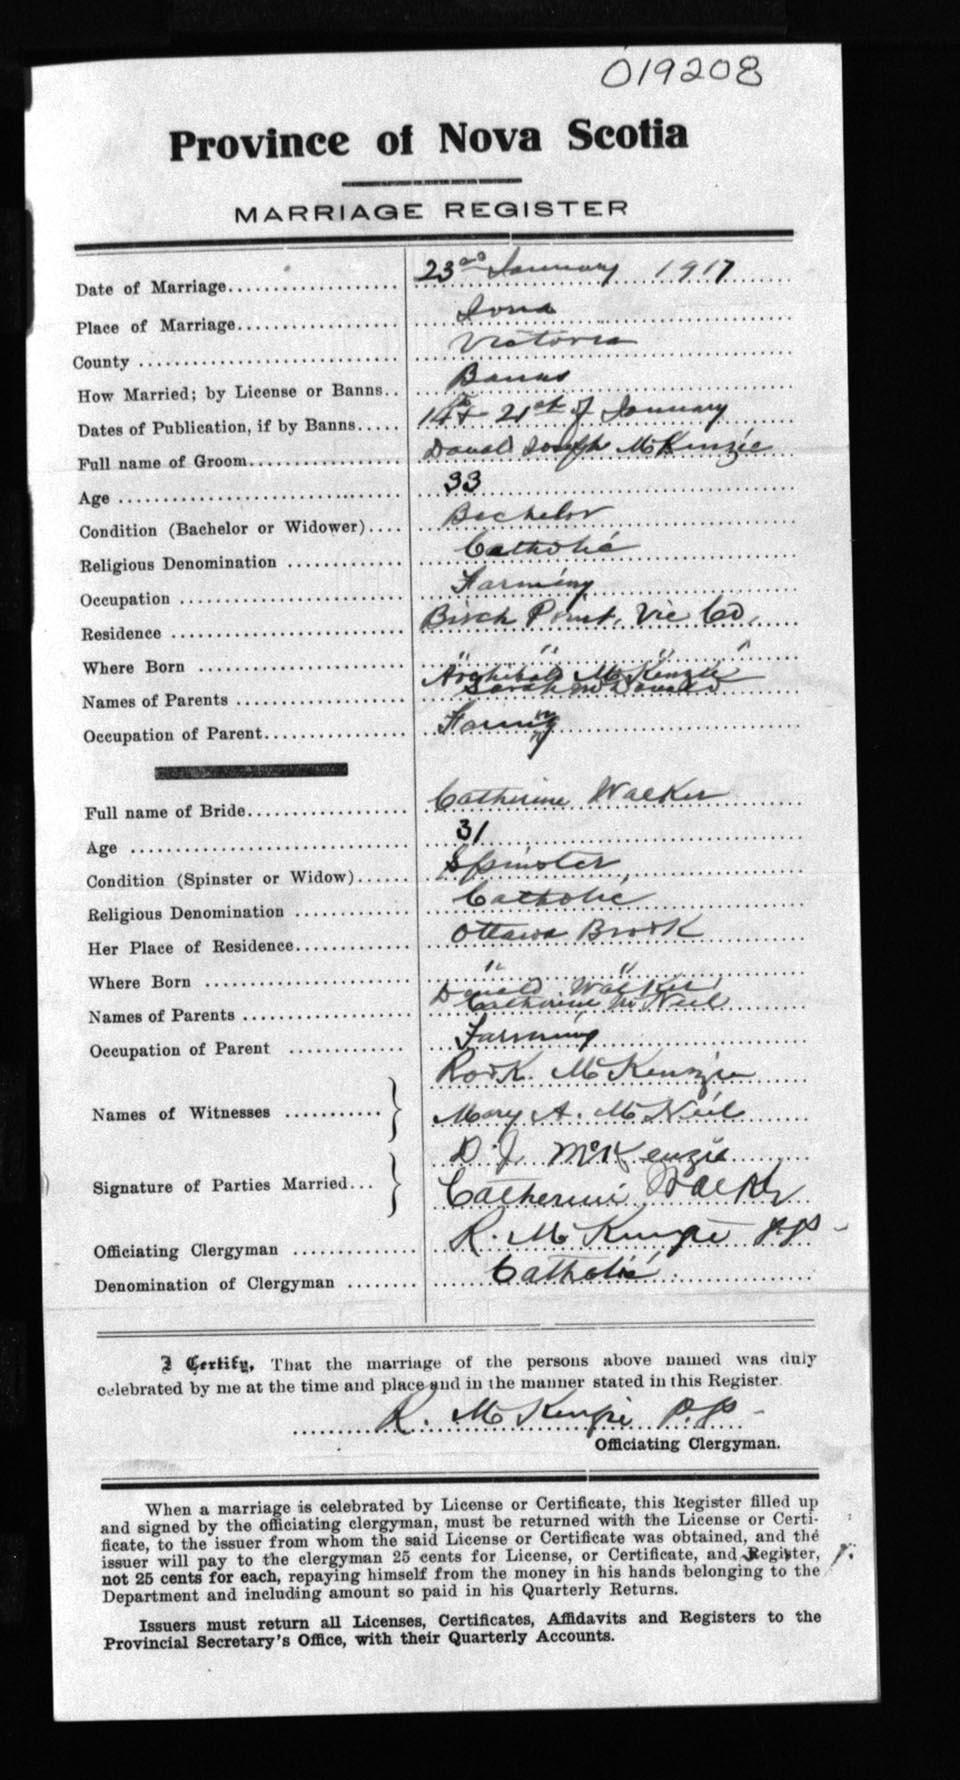 019208
Province of Nova Scotia
MARRIAGE REGISTER
Date of Marriage 23rd January 1917
Place of Marriage Iona
County Victoria
How Married; by License or Banns Banns
Dates of Publication, if by Banns 14th 21st of January
Full name of Groom Donald Joseph McKenzie
Age 33
Condition (Bachelor or Widower) Bachelor
Religious Denomination Catholic
Occupation Farming
Residence Birch Point, Vic Co,
Where Born " " " "
Names of Parents Archibald McKenzie
Sarah McDonald
Occupation of Parent Farming
Full name of Bride Catherine Walker
Age 31
Condition (Spinster or Widow) Spinster,
Religious Denomination Catholic
Her Place of Residence Ottawa Brook
Where Born " "
Names of Parents Donald Walker
Catherine McNeil
Occupation of Parent Farming
Names of Witnesses } Rodk. McKenzie
Mary A. McNeil
Signature of Parties Married } D. J. McKenzie
Catherine Walker
Officiating Clergyman R. McKenzie P.P.
Denomination of Clergyman Catholic
I Certify, That the marriage of the persons above named was duly
celebrated by me at the time and place and in the manner stated in this Register.
R. McKenzie P.P.
Officiating Clergyman.
When a marriage is celebrated by License or Certificate, this Register filled up
and signed by the officiating clergyman, must be returned with the License or Certi-
ficate, to the issuer from whom the said License or Certificate was obtained, and the
issuer will pay to the clergyman 25 cents for License, or Certificate, and Register,
not 25 cents for each, repaying himself from the money in his hands belonging to the
Department and including amount so paid in his Quarterly Returns.
Issuers must return all Licenses, Certificates, Affidavits and Registers to the
Provincial Secretary's Office, with their Quarterly Accounts.